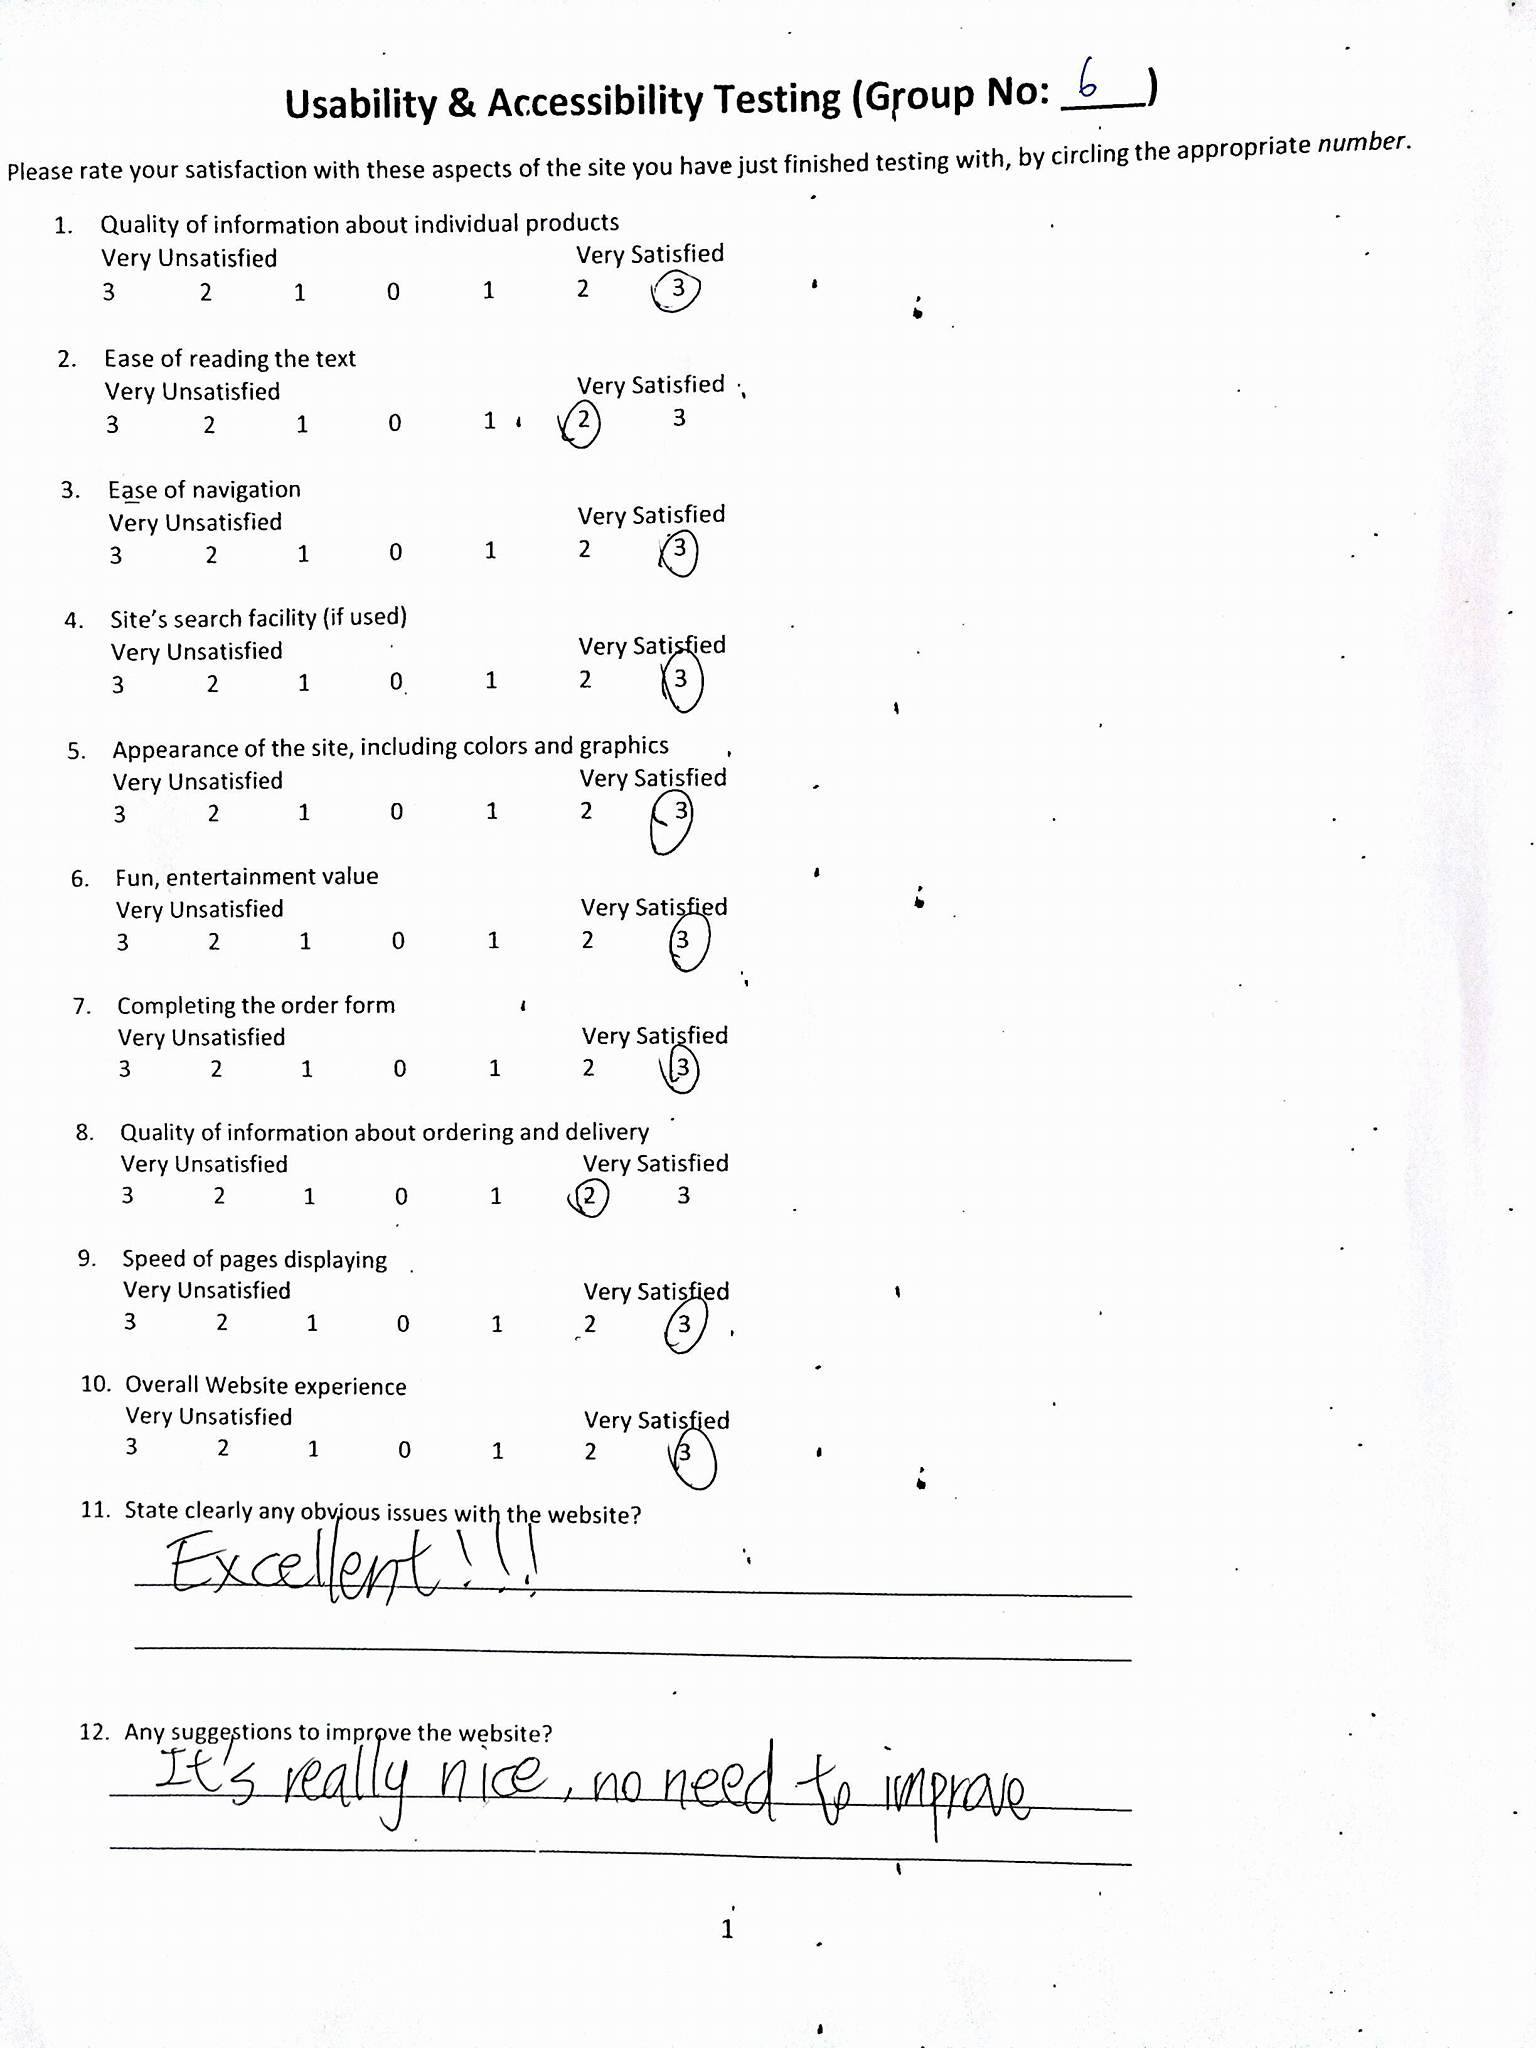 Usability & Accessibility Testing (Group No: 6)
Please rate your satisfaction with these aspects of the site you have just finished testing with, by circling the appropriate number.
1. Quality of information about individual products
Very Unsatisfied Very Satisfied
3 2 1 0 1 2 3
2. Ease of reading the text
Very Unsatisfied Very Satisfied
3 2 1 0 1 2 3
3. Ease of navigation
Very Unsatisfied Very Satisfied
3 2 1 0 1 2 3
4. Site's search facility (if used)
Very Unsatisfied Very Satisfied
3 2 1 0 1 2 3
5. Appearance of the site, including colors and graphics
Very Unsatisfied Very Satisfied
3 2 1 0 1 2 3
6. Fun, entertainment value
Very Unsatisfied Very Satisfied
3 2 1 0 1 2 3
7. Completing the order form
Very Unsatisfied Very Satisfied
3 2 1 0 1 2 3
8. Quality of information about ordering and delivery
Very Unsatisfied Very Satisfied
3 2 1 0 1 2 3
9. Speed of pages displaying
Very Unsatisfied Very Satisfied
3 2 1 0 1 2 3
10. Overall Website experience
Very Unsatisfied Very Satisfied
3 2 1 0 1 2 3
11. State clearly any obvious issues with the website?
Excellent!!!
12. Any suggestions to improve the website?
It's really nice, no need to improve
1